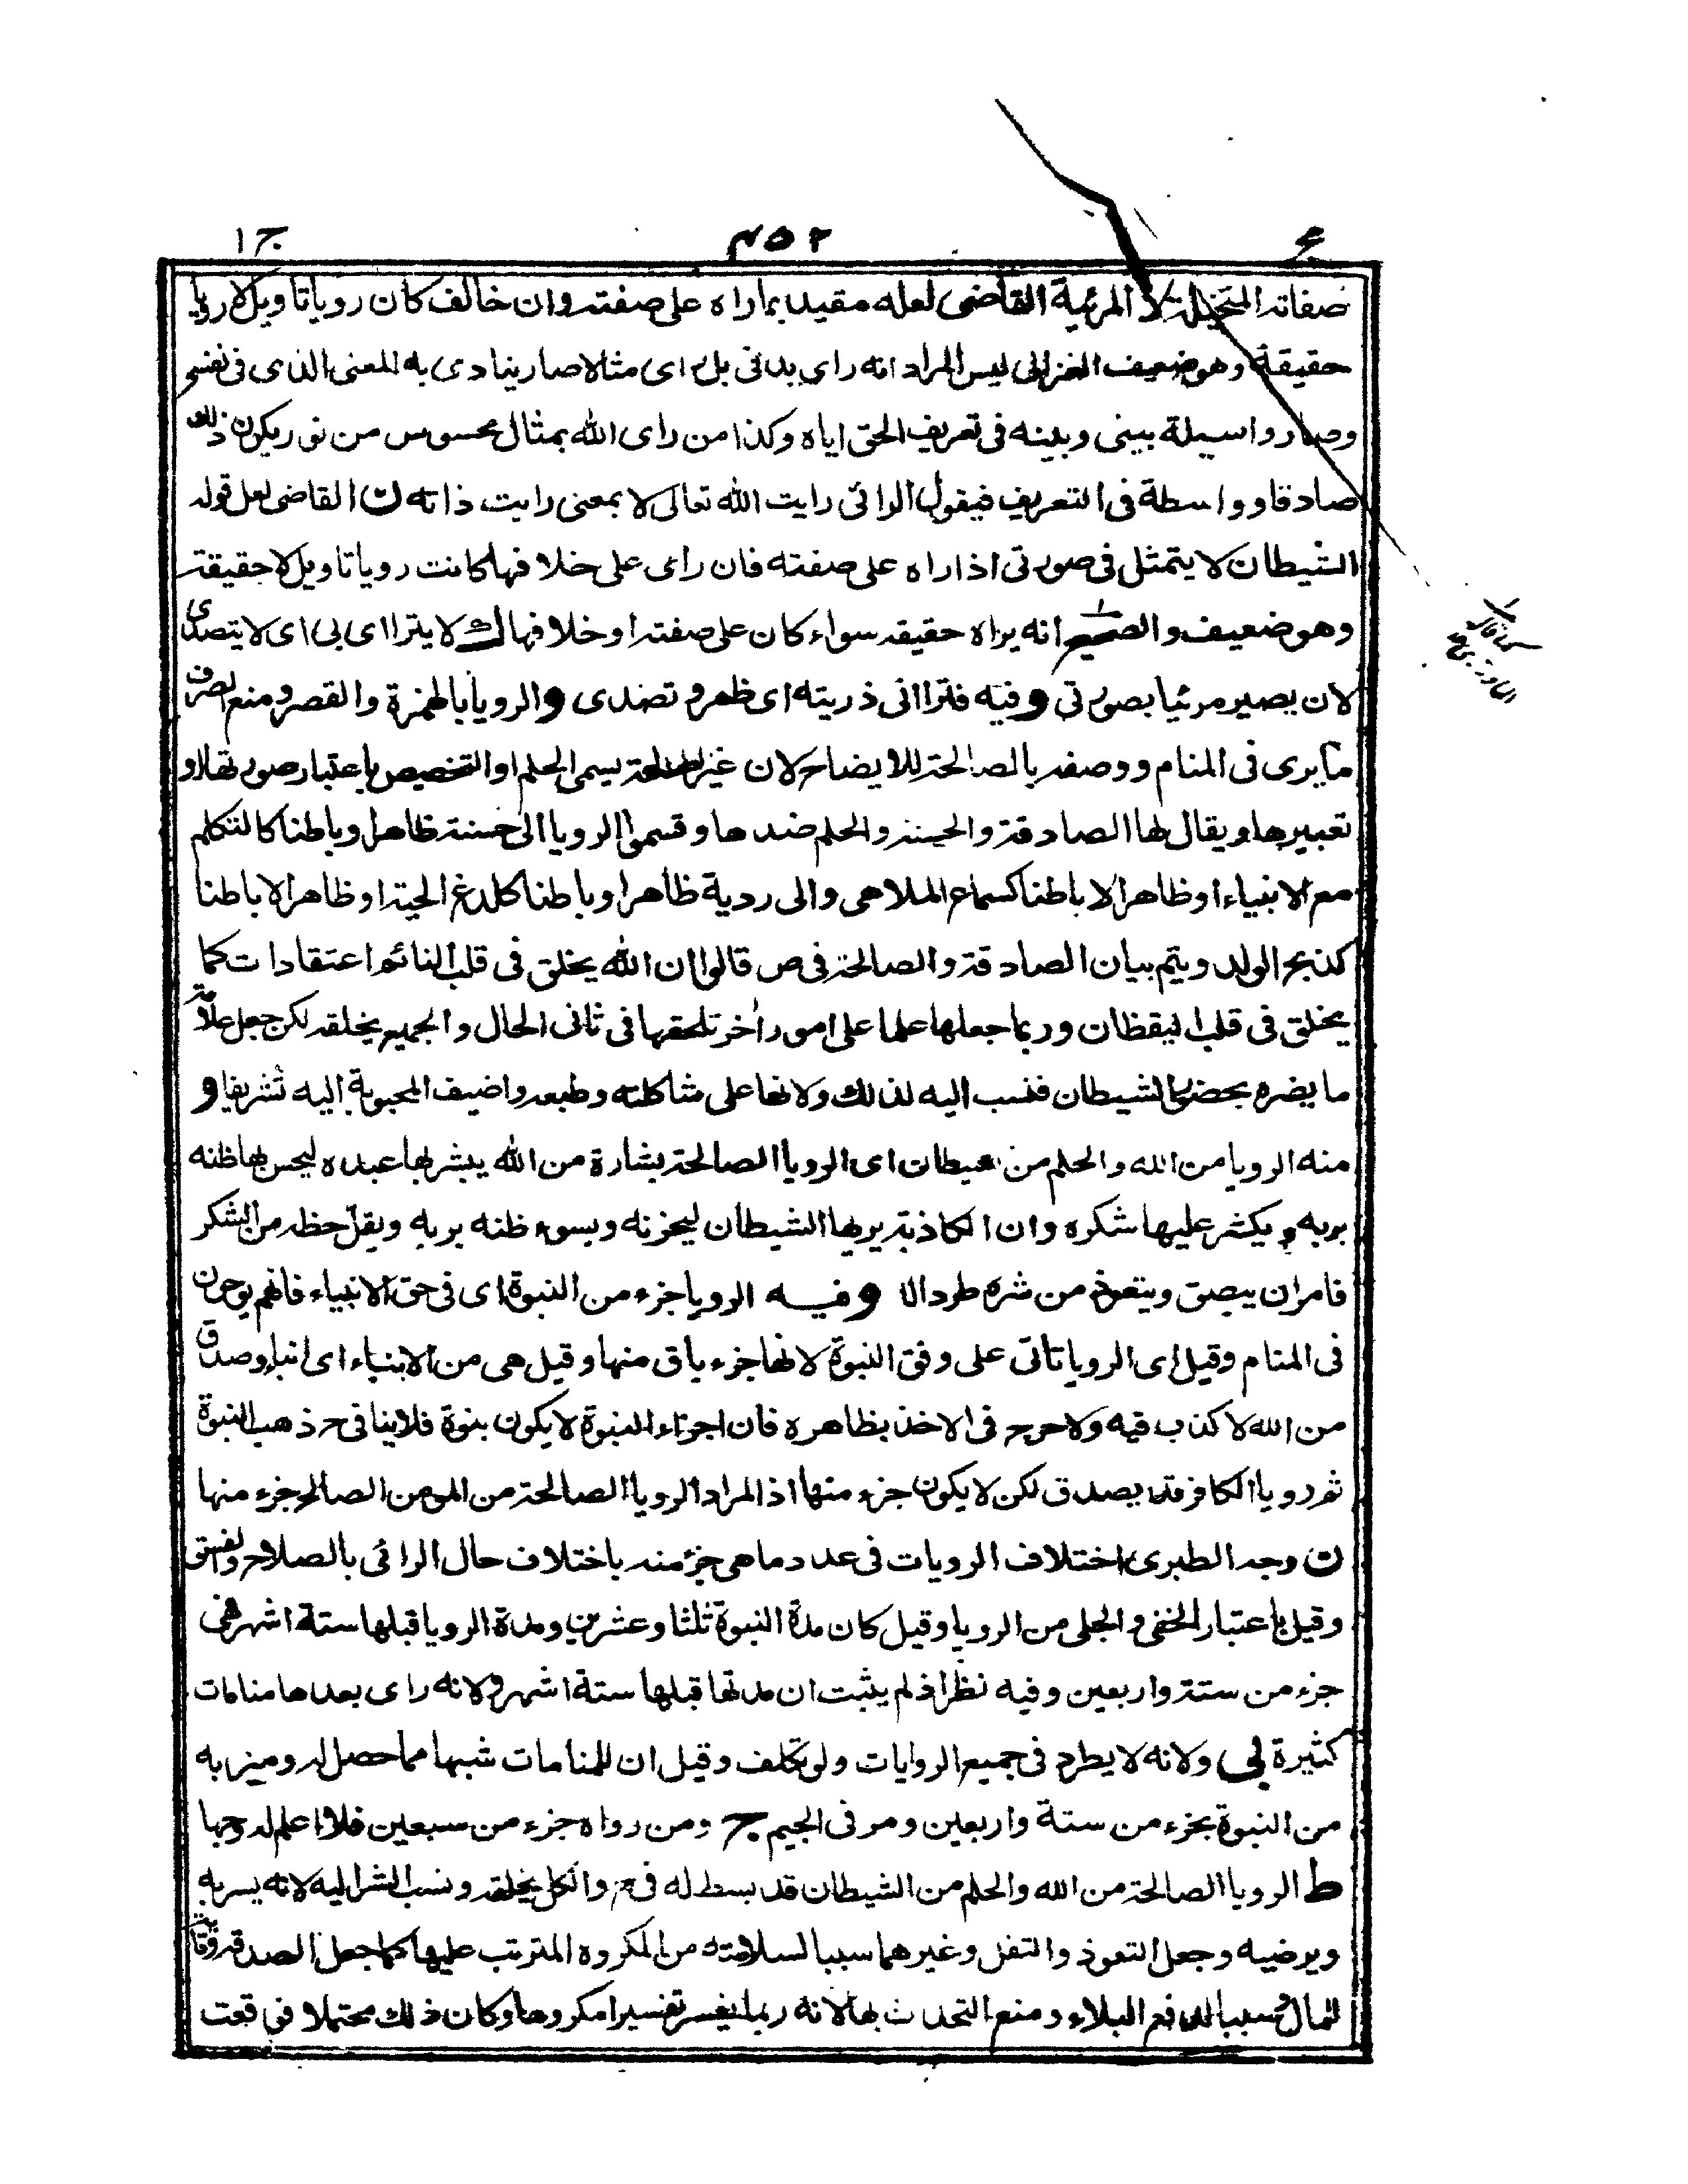 ج ٤٥٢ ج ١
صفاته المتخيلة لا المرئية القاضى لعله مقيد بما راه على صفته وان خالف كان رويا تاويل لا رويا
حقيقة وهو ضعيف الغزالى ليس المراد انه راى بدنى بل راى مثالا صار ينادى به المعنى الذى فى نفسى
وصار واسيلة بينى وبينه فى تعريف الحق اياه وكذا من راى الله بمثال محسوس من نور يكون ذلك
صادقا وواسطة فى التعريف فيقول الرائى رايت الله تعالى لا بمعنى رايت ذاته ن القاضى لعل قوله
الشيطان لا يتمثل فى صورتى اذا راه على صفته فان راى على خلافها كانت رويا تاويل لا حقيقة
وهو ضعيف والصحيح انه يراه حقيقه سواء كان على صفته او خلافها ك لا يتراا ى بى اى لا يتصدى
لان يصير مرئيا بصورتى وفيه فتراانى ذريته اى ظهر و تصدى و الرويا بالهمزة والقصر و منع الصرف
ما يرى فى المنام ووصفه بالصالحة للايضاح لان غير الصالحة يسمى الحلم او التخصيص باعتبار صورتها او
تعبيرها ويقال لها الصادقة والحسنة والحلم ضدها وقسموا الرويا الى حسنة ظاهرا وباطنا كالتكلم
مع الانبياء او ظاهرا لا باطنا كسماع الملاهى والى ردية ظاهرا وباطنا كلدغ الحية او ظاهرا لا باطنا
كذبح الولد ويتم بيان الصادقة والصالحة فى ص قالوا ان الله يخلق فى قلب النائم اعتقادات كما
يخلق فى قلب اليقظان وربما جعلها علما على امور اخر تلحقها فى ثانى الحال والجميع يخلقه لكن جعل علامة
ما يضره بحضور الشيطان فنسب اليه لذلك ولانها على مشاكلته وطبعه واضيف المحبوبة اليه تشريفا و
منه الرويا من الله والحلم من شيطان اى الرويا الصالحة بشارة من الله يبشر بها عبده ليحسن بها ظنه
بربه ويكثر عليها شكره وان الكاذبة يريها الشيطان ليحزنه ويسوء ظنه بربه ويقل حظه من الشكر
فامر ان يبصق ويتعوذ من شره طردا له وفيه الرويا جزء من النبوة اى فى حق الانبياء فانهم يوحون
فى المنام وقيل اى الرويا تاتى على وفق النبوة لا انها جزء باق منها وقيل هى من الانباء اى انباء وصدق
من الله لا كذب فيه ولا حرج فى الاخذ بظاهره فان اجزاء النبوة لا يكون بنوة فلا ينافى ح ذهب النبوة
ثم رويا الكافر قد يصدق لكن لا يكون جزء منها اذ المراد الرويا الصالحة من المومن الصالح جزء منها
ن وجه الطبرى اختلاف الرويات فى عدد ما هى جزء منه باختلاف حال الرائى بالصلاح والفسق
وقيل باعتبار الخفى والجلى من الرويا وقيل كان مدة النبوة ثلثا وعشرين ومدة الرويا قبلها ستة اشهر فهى
جزء من ستة واربعين وفيه نظر اذ لم يثبت ان مدتها قبلها ستة اشهر ولانه راى بعدها منامات
كثيرة لى ولانه لا يطرد فى جميع الروايات ولو تكلف وقيل ان للمنامات شبها مما حصل له وميز به
من النبوة بجزء من ستة واربعين ومر فى الجيم ج ومن رواه جزء من سبعين فلا اعلم له وجها
ط الرويا الصالحة من الله والحلم من الشيطان قد بسط له فى ح والكل يخلقه ونسب الشر اليه لانه يسر به
ويرضيه وجعل التعوذ والتفل وغيرهما سببا لسلامته من المكروه المترتب عليها كما جعل الصدقه وقاية
للمال وسببا لدفع البلاء ومنع التحدث بها لانه ربما يفسر تفسيرا مكروها وكان ذلك محتملا فوقعت